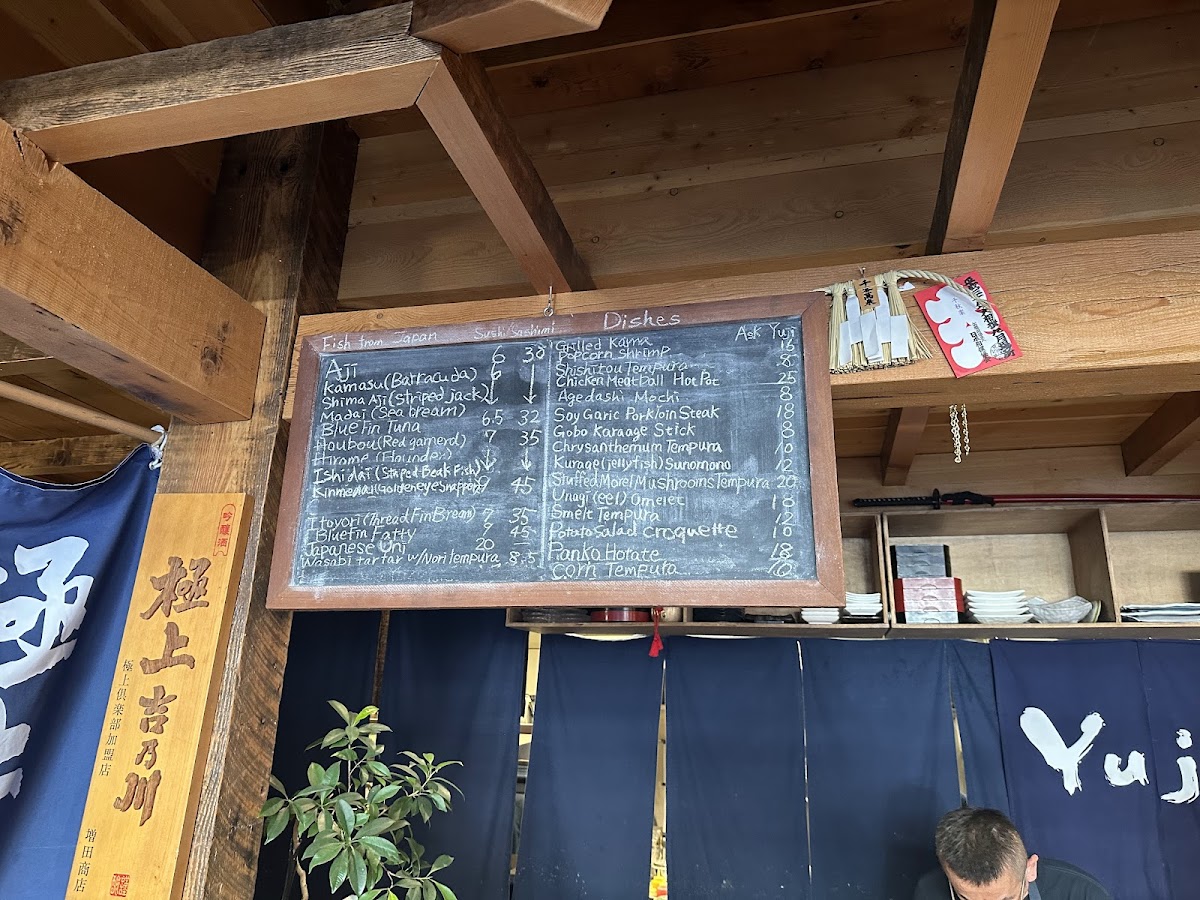 Fish from Japan Sushi Sashimi
Aji 6 30
Kamasu (Barracuda) 6
Shima Aji (Striped jack)
Madai (Sea bream) 6.5 32
Blue Fin Tuna
Houbou (Red gamerd) 7 35
Hirame (Flounder)
Ishi Dai (Striped Beak Fish)
Kinmedai (Goldeneye Snapper) 9 45
Itoyori (Thread Fin Bream) 7 35
Bluefin Fatty 9 45
Japanese Uni 20
Wasabi tartar w/ Nori tempura 8.5
Dishes
Grilled Kama Ask Yuji
Popcorn Shrimp 16
Shishitou Tempura 8
Chicken Meatball Hot Pot 25
Agedashi Mochi 8
Soy Garic Porkloin Steak 18
Gobo Karaage Stick 8
Chrysanthemum Tempura 10
Kurage (jellyfish) Sunomono 12
Stuffed Morel Mushrooms Tempura 20
Unagi (eel) Omelet
Smelt Tempura 12
Potato Salad croquette 10
Panko Hotate 18
Corn Tempura 16
吟醸酒
極上吉乃川
極上倶楽部加盟店
増田商店
極上
千客万来
Yuj